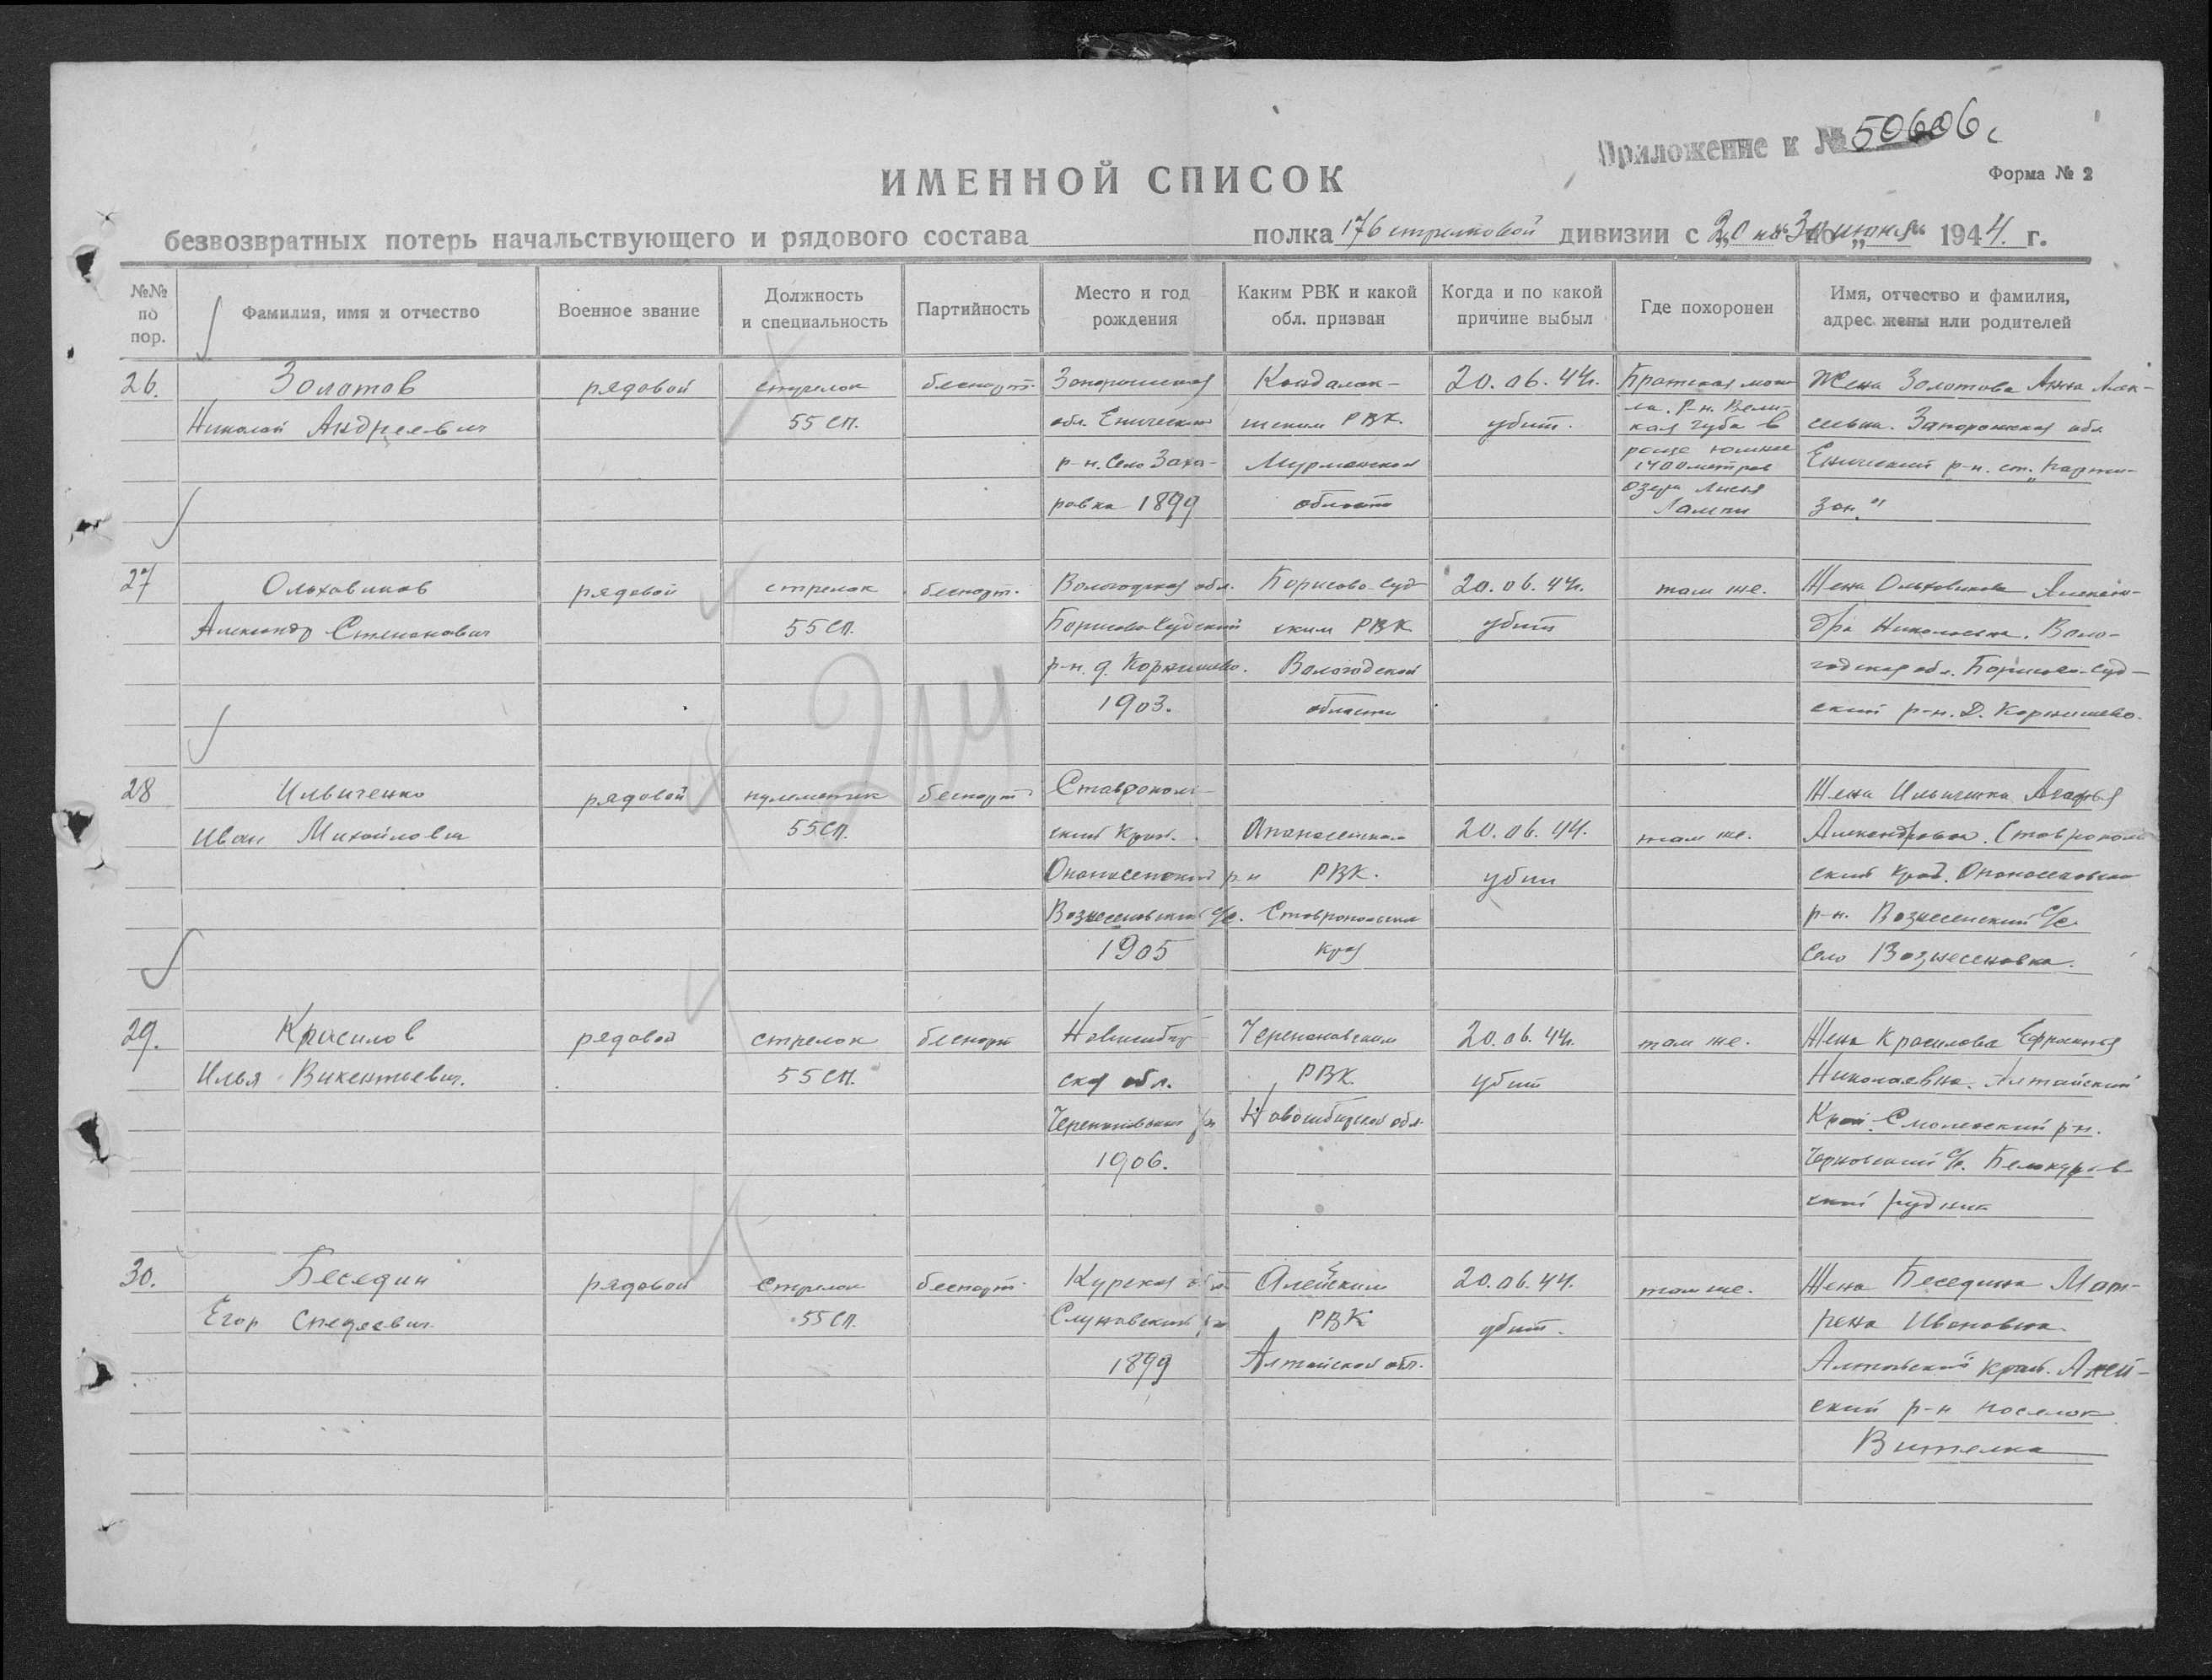 Приложение к № 50606с
ИМЕННОЙ СПИСОК
Форма № 2
безвозвратных потерь начальствующего и рядового состава полка 176 стрелковой дивизии с 20 по 30 июня 1944 г.
№№ по пор.
Фамилия, имя и отчество
Военное звание
Должность и специальность
Партийность
Место и год рождения
Каким РВК и какой обл. призван
Когда и по какой причине выбыл
Где похоронен
Имя, отчество и фамилия, адрес жены или родителей
26. Золотов рядовой стрелок беспарт. Запорожская Кандалак- 20.06.44г. Братская моги- Жена Золотова Анна Алек-
Николай Андреевич 55 сп. обл. Генический шским РВК. убит. ла. Р-н. Вели-
кая губа в сеевна. Запорожская обл.
р-н. Село Заха- Мурманской роще южнее
1400 метров Енический р-н. ст. „Парти-
ровка 1899 области озера Лисья
Лампи зан."
27 Ольховиков рядовой стрелок беспарт. Вологодская обл. Борисово-Суд- 20.06.44г. там же. Жена Ольховикова Алексан-
Александр Степанович 55 сп. Борисово-Судский ским РВК убит дра Николаевна. Воло-
р-н. д. Коркишево. Вологодской годская обл. Борисово-Суд-
1903. области ский р-н. Д. Коркишево.
28 Ильиченко рядовой пулеметчик беспарт Ставрополь- Жена Ильиченко Агафья
Иван Михайлович 55 сп. ский край. Апанасенским 20.06.44. там же. Александровна. Ставрополь
Опанасенский р-н РВК. убит ский край. Опанасенковский
Вознесеновский с/с. Ставропольский р-н. Вознесенский с/с
1905 край Село Вознесеновка.
29. Красилов рядовой стрелок беспарт Новосибир- Черепановским 20.06.44г. там же. Жена Красилова Ефросинья
Илья Викентьевич. 55 сп. ская обл. РВК. убит Николаевна. Алтайский
Черепановский р-н Новосибирской обл. Край. Смоленский р-н.
1906. с/с. Белокуров
ский рудник
30. Беседин рядовой стрелок беспарт. Курская обл. Алейским 20.06.44. там же. Жена Беседина Мат-
Егор 55 сп. РВК убит. рена Ивановна
1899 Алтайской обл. Алтайский край. Алей-
ский р-н поселок